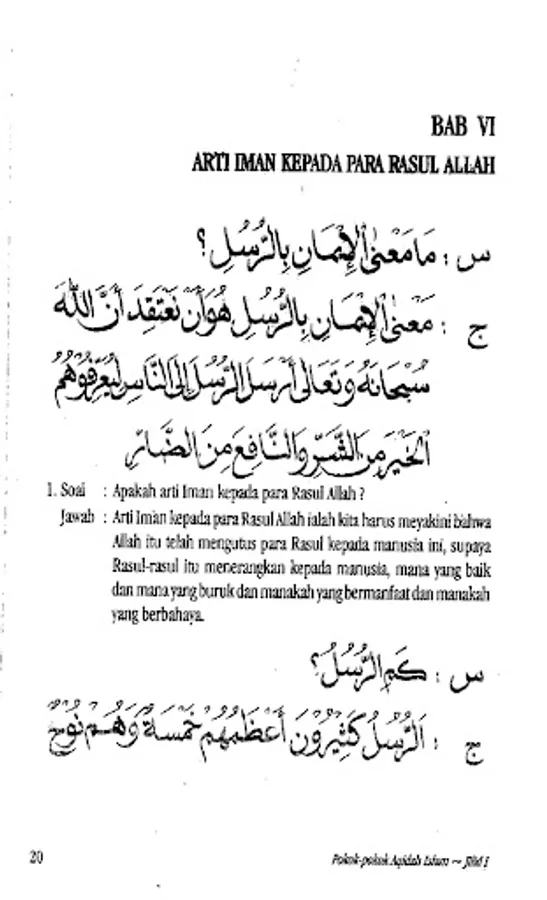 BAB VI
ARTI IMAN KEPADA PARA RASUL ALLAH
س : مَا مَعْنَى الْإِيْمَانِ بِالرُّسُلِ ؟
ج : مَعْنَى الْإِيْمَانِ بِالرُّسُلِ هُوَ أَنْ نَعْتَقِدَ أَنَّ اللّٰهَ
سُبْحَانَهُ وَتَعَالَى أَرْسَلَ الرُّسُلَ إِلَى النَّاسِ لِيُعَرِّفُوهُمُ
الْخَيْرَ مِنَ الشَّرِّ وَالنَّافِعَ مِنَ الضَّارِّ
1. Soal : Apakah arti Iman kepada para Rasul Allah ?
Jawab : Arti Iman kepada para Rasul Allah ialah kita harus meyakini bahwa
Allah itu telah mengutus para Rasul kepada manusia ini, supaya
Rasul-rasul itu menerangkan kepada manusia, mana yang baik
dan mana yang buruk dan manakah yang bermanfaat dan manakah
yang berbahaya.
س : كَمِ الرُّسُلُ ؟
ج : اَلرُّسُلُ كَثِيْرُوْنَ أَعْظَمُهُمْ خَمْسَةٌ وَهُمْ نُوْحٌ
20 Pokok-pokok Aqidah Islam ~ Jilid I